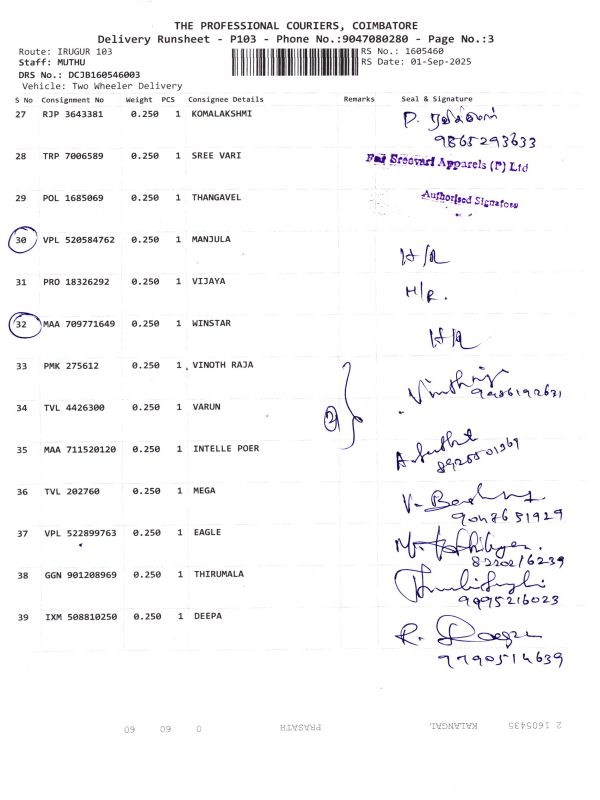 THE PROFESSIONAL COURIERS, COIMBATORE
Delivery Runsheet - P103 - Phone No.:9047080280 - Page No.:3
Route: IRUGUR 103 RS No.: 1605460
Staff: MUTHU RS Date: 01-Sep-2025
DRS No.: DCJB160546003
Vehicle: Two Wheeler Delivery
S No Consignment No Weight PCS Consignee Details Remarks Seal & Signature
27 RJP 3643381 0.250 1 KOMALAKSHMI
9865293633
28 TRP 7006589 0.250 1 SREE VARI
For Sreevari Apparels (P) Ltd
29 POL 1685069 0.250 1 THANGAVEL
Authorised Signatory
30 VPL 520584762 0.250 1 MANJULA H/R
31 PRO 18326292 0.250 1 VIJAYA H/R.
32 MAA 709771649 0.250 1 WINSTAR H/R
33 PMK 275612 0.250 1 VINOTH RAJA
34 TVL 4426300 0.250 1 VARUN
35 MAA 711520120 0.250 1 INTELLE POER
36 TVL 202760 0.250 1 MEGA
9047651929
37 VPL 522899763 0.250 1 EAGLE
8220216239
38 GGN 901208969 0.250 1 THIRUMALA
9995216023
39 IXM 508810250 0.250 1 DEEPA
9790514639
2 1605435 KALANGAL PRASATH 0 60 60